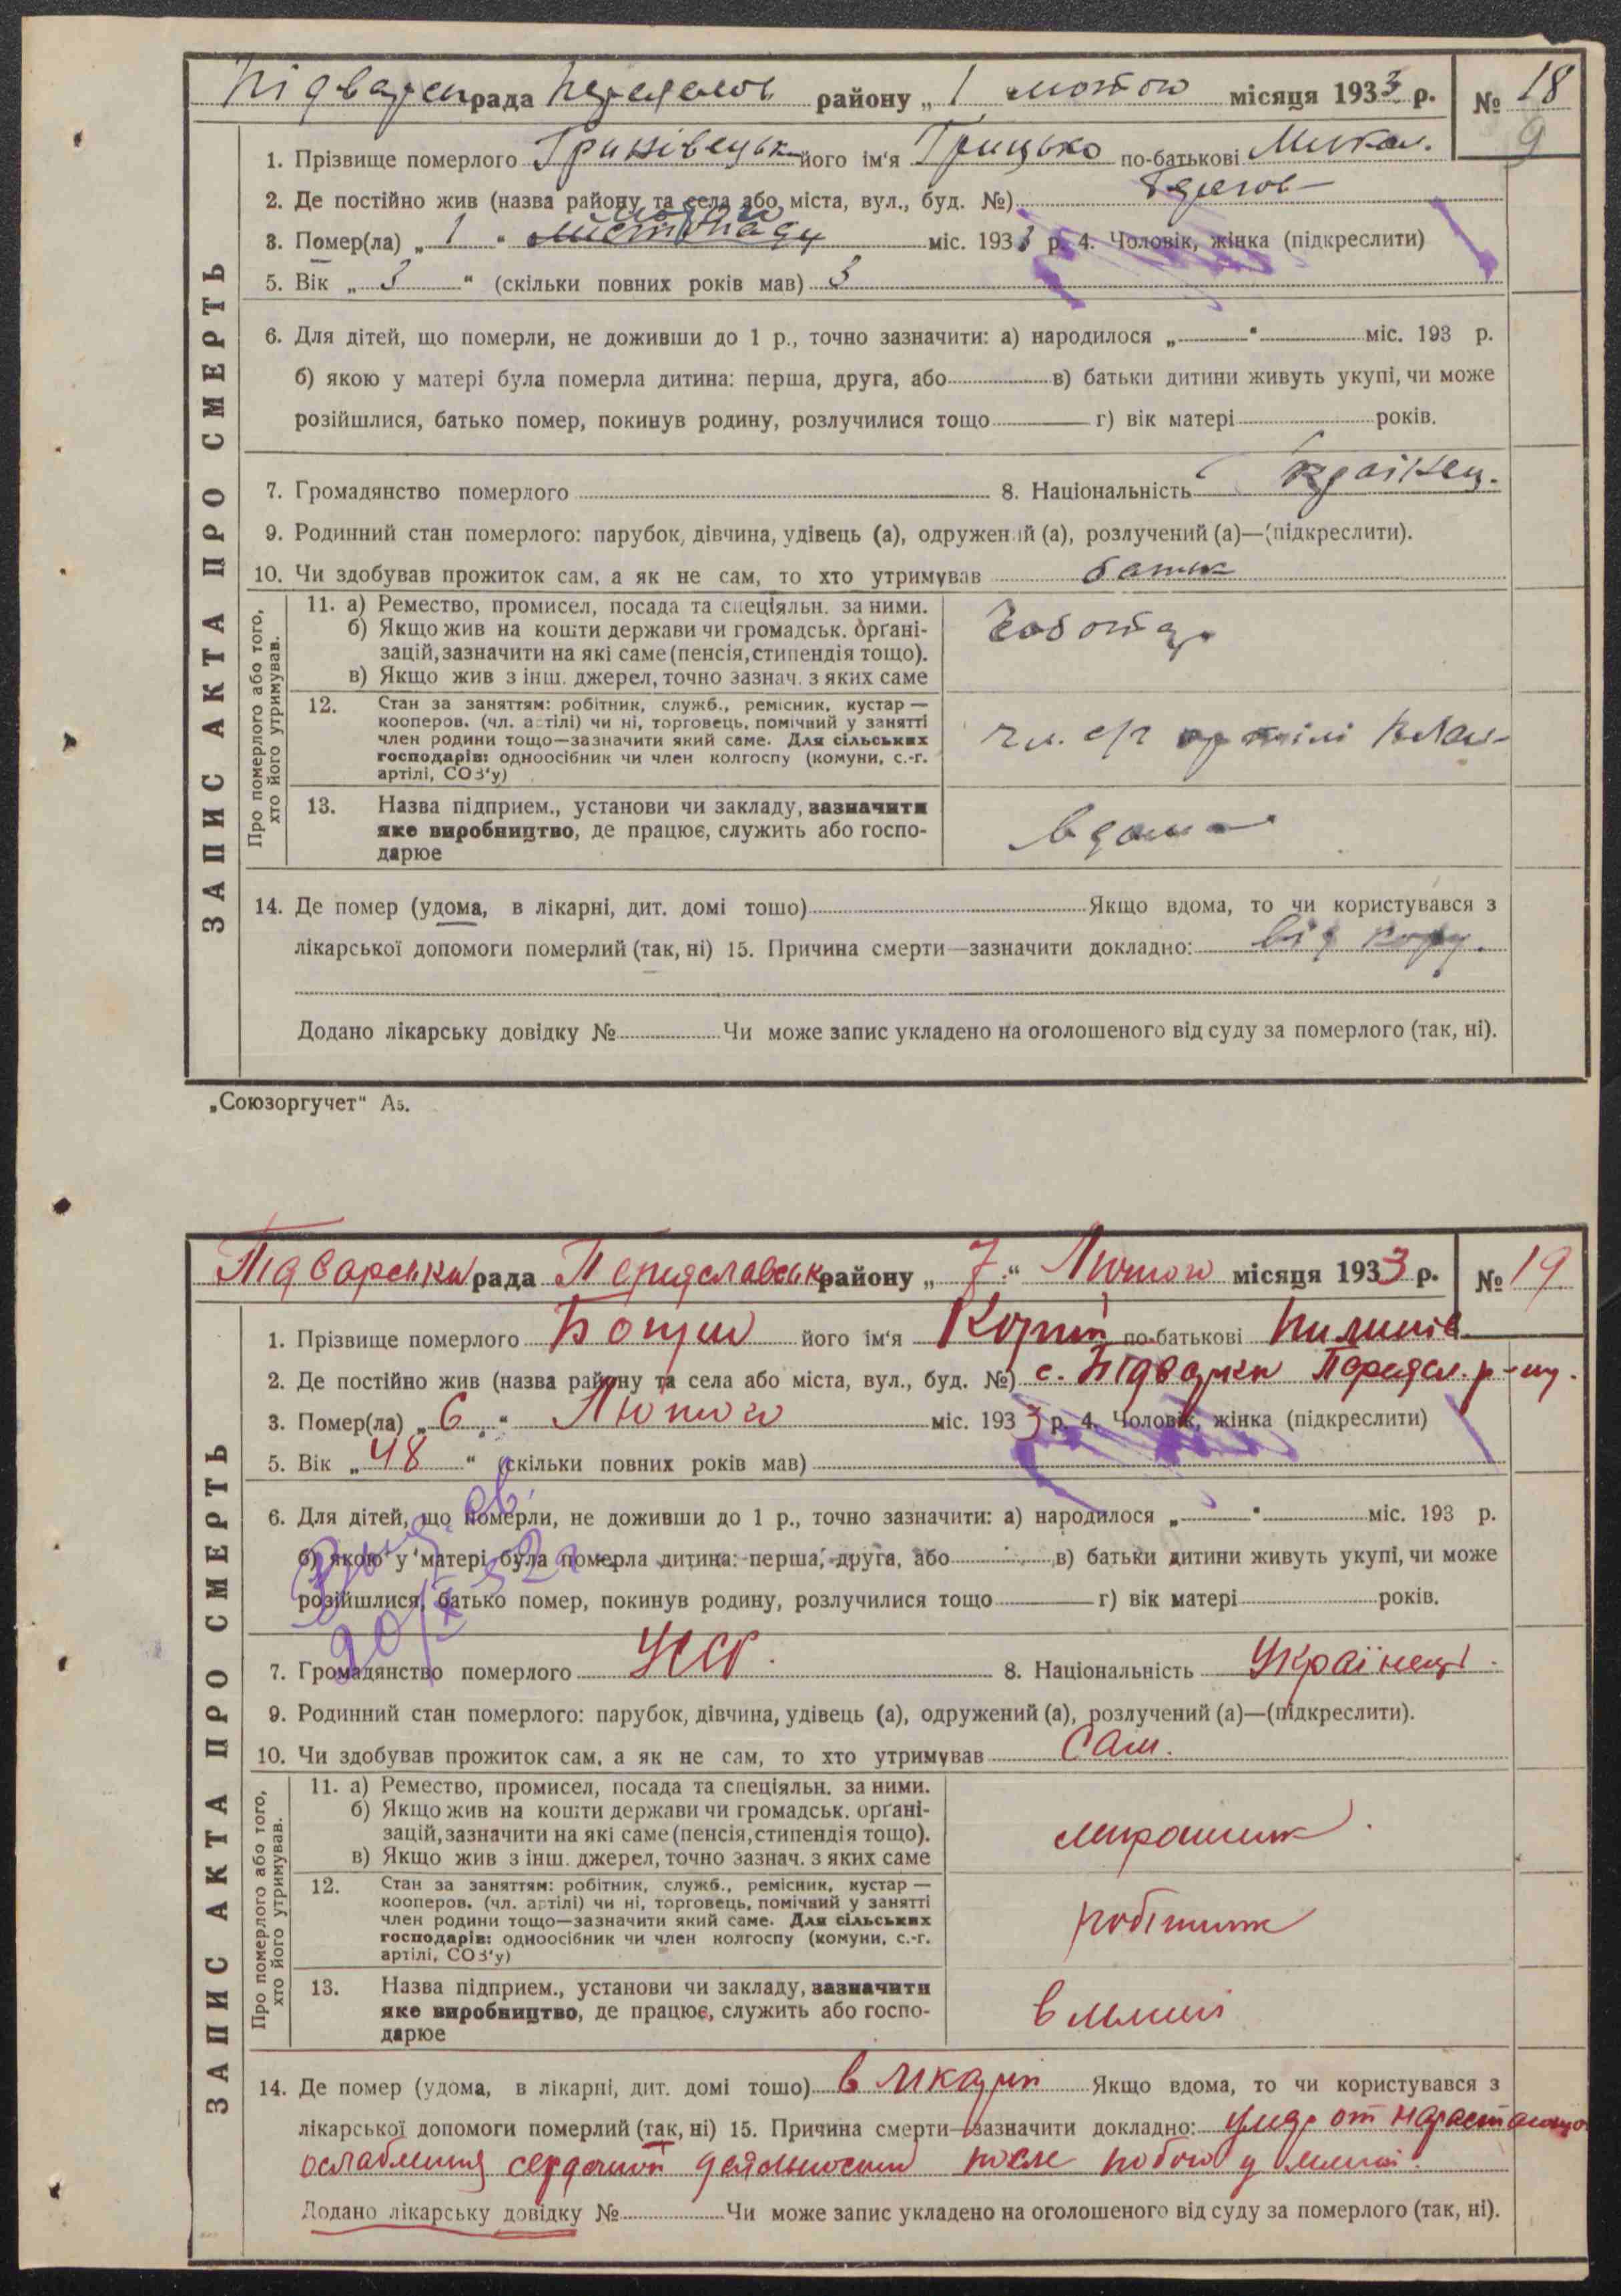 Підварськ рада Переяслов району „ 1 лютого місяця 1933 р. № 18
9
1. Прізвище померлого його ім'я Грицько по-батькові Микол.
2. Де постійно жив (назва району та села або міста, вул., буд. №)
лютого
3. Помер(ла) „ 1 “ листопаду міс. 1933 р. 4. Чоловік, жінка (підкреслити)
5. Вік „ 3 “ (скільки повних років мав) 3
6. Для дітей, що померли, не доживши до 1 р., точно зазначити: а) народилося „ “ міс. 193 р.
б) якою у матері була померла дитина: перша, друга, або в) батьки дитини живуть укупі, чи може
розійшлися, батько помер, покинув родину, розлучилися тощо г) вік матері років.
7. Громадянство померлого 8. Національність Українец.
9. Родинний стан померлого: парубок, дівчина, удівець (а), одружений (а), розлучений (а)—(підкреслити).
10. Чи здобував прожиток сам, а як не сам, то хто утримував батьк
ЗАПИС АКТА ПРО СМЕРТЬ
Про померлого або того, хто його утримував.
11. а) Ремество, промисел, посада та спеціяльн. за ними.
б) Якщо жив на кошти держави чи громадськ. органі-
зацій, зазначити на які саме (пенсія, стипендія тощо).
в) Якщо жив з інш. джерел, точно зазнач. з яких саме
12. Стан за заняттям: робітник, служб., ремісник, кустар —
кооперов. (чл. артілі) чи ні, торговець, помічний у занятті
член родини тощо—зазначити який саме. Для сільських
господарів: одноосібник чи член колгоспу (комуни, с.-г.
артілі, СОЗ'у)
чл. с/г артілі
13. Назва підприєм., установи чи закладу, зазначити
яке виробництво, де працює, служить або госпо-
дарює
вдома
14. Де помер (удома, в лікарні, дит. домі тошо) Якщо вдома, то чи користувався з
лікарської допомоги померлий (так, ні) 15. Причина смерти—зазначити докладно: від кору.
Додано лікарську довідку № Чи може запис укладено на оголошеного від суду за померлого (так, ні).
„Союзоргучет“ А5.
Підварська рада Переяславськ району „ 7 “ Лютого місяця 1933 р. № 19
1. Прізвище померлого його ім'я Корній по-батькові Пилипів
2. Де постійно жив (назва району та села або міста, вул., буд. №) с. Підварки Переясл. р-ну.
3. Помер(ла) „ 6 “ Лютого міс. 1933 р. 4. Чоловік, жінка (підкреслити)
5. Вік „ 48 “ (скільки повних років мав)
6. Для дітей, що померли, не доживши до 1 р., точно зазначити: а) народилося „ “ міс. 193 р.
б) якою у матері була померла дитина: перша, друга, або в) батьки дитини живуть укупі, чи може
розійшлися, батько помер, покинув родину, розлучилися тощо г) вік матері років.
7. Громадянство померлого УССР. 8. Національність Українець.
9. Родинний стан померлого: парубок, дівчина, удівець (а), одружений (а), розлучений (а)—(підкреслити).
10. Чи здобував прожиток сам, а як не сам, то хто утримував Сам.
ЗАПИС АКТА ПРО СМЕРТЬ
Про померлого або того, хто його утримував.
11. а) Ремество, промисел, посада та спеціяльн. за ними.
б) Якщо жив на кошти держави чи громадськ. органі-
зацій, зазначити на які саме (пенсія, стипендія тощо).
в) Якщо жив з інш. джерел, точно зазнач. з яких саме
мірошник.
12. Стан за заняттям: робітник, служб., ремісник, кустар —
кооперов. (чл. артілі) чи ні, торговець, помічний у занятті
член родини тощо—зазначити який саме. Для сільських
господарів: одноосібник чи член колгоспу (комуни, с.-г.
артілі, СОЗ'у)
робітник
13. Назва підприєм., установи чи закладу, зазначити
яке виробництво, де працює, служить або госпо-
дарює
в млині
14. Де помер (удома, в лікарні, дит. домі тошо) в лікарні Якщо вдома, то чи користувався з
лікарської допомоги померлий (так, ні) 15. Причина смерти—зазначити докладно: умер от нарастающо
ослабления сердечной деятельности после побою у млині.
Додано лікарську довідку № Чи може запис укладено на оголошеного від суду за померлого (так, ні).